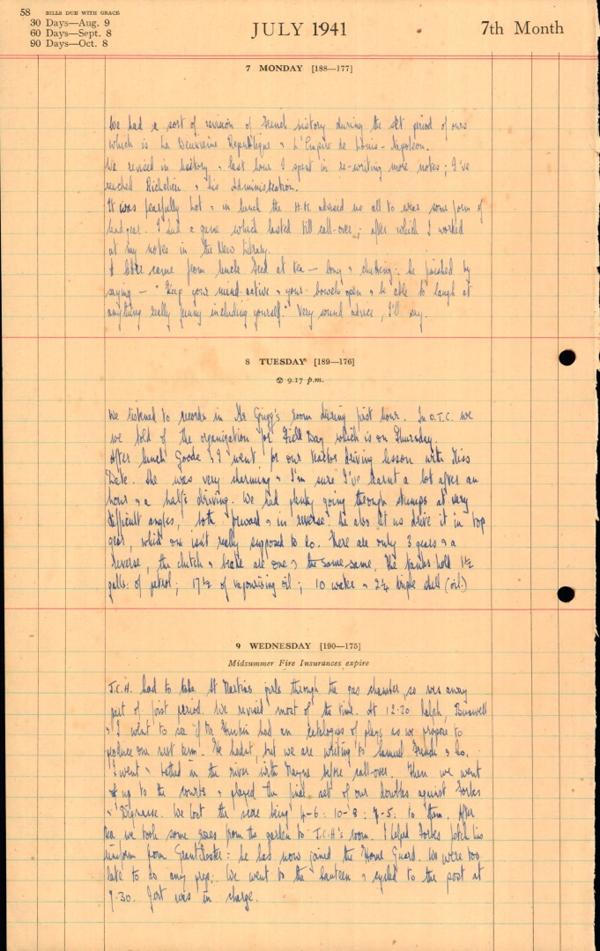 58 BILLS DUE WITH GRACE
30 Days—Aug. 9
60 Days—Sept. 8
90 Days—Oct. 8
JULY 1941
7th Month
7 MONDAY [188—177]
We had a sort of revision of French history during the set period of ours
which is La Deuxieme Republique & L'Empire de Louis-Napoleon.
We revised in history & last hour I spent in re-writing more notes; I've
reached Richelieu & his Administration.
It was fearfully hot & in lunch the H.M. advised us all to wear some form of
headgear. I had a game which lasted till call-over; after which I worked
at my notes in the New Library.
A letter came from Uncle at tea — long & : he finished by
saying — "Keep your mind active & your bowels open & be able to laugh at
anything really funny including yourself." Very sound advice, I'll say.
8 TUESDAY [189—176]
9.17 p.m.
We listened to records in Mr Grigg's room during first hour. In O.T.C. we
we told of the organization for Field Day which is on Thursday.
After lunch Goode & I went for our tractor driving lesson with Miss
Dale. She was very charming & I'm sure I've learnt a lot after an
hour & a half's driving. We had plenty going through at very
difficult angles, both forward & in reverse: he also let us drive it in top
gear, which one isn't really supposed to do. There are only 3 gears & a
reverse, the clutch & brake are one & the same. The tanks hold 1½
galls. of petrol; 17½ of vaporising oil; 10 water & 2½ triple shell (oil)
9 WEDNESDAY [190—175]
Midsummer Fire Insurances expire
J.C.H. had to take St Martins girls through the gas chamber, so was away
part of last period. We revised most of the time. At 12.20 Ralph,
& I went to see if Mr had an catalogues of plays as we propose to
produce one next term. He hadn't, but we are writing to Samuel French & Co.
I went & bathed in the river with before call-over. Then we went
up to the courts & played the final set of our doubles against Forbes
& . We lost the score being 4-6: 10-8: 7-5: to them. After
tea we took some from the garden to J.C.H's room. I helped Forbes fetch his
uniform from Grantchester: he has now joined the Home Guard. We were too
late to do any prep: We went to the Canteen & cycled to the post at
9.30. was in charge.